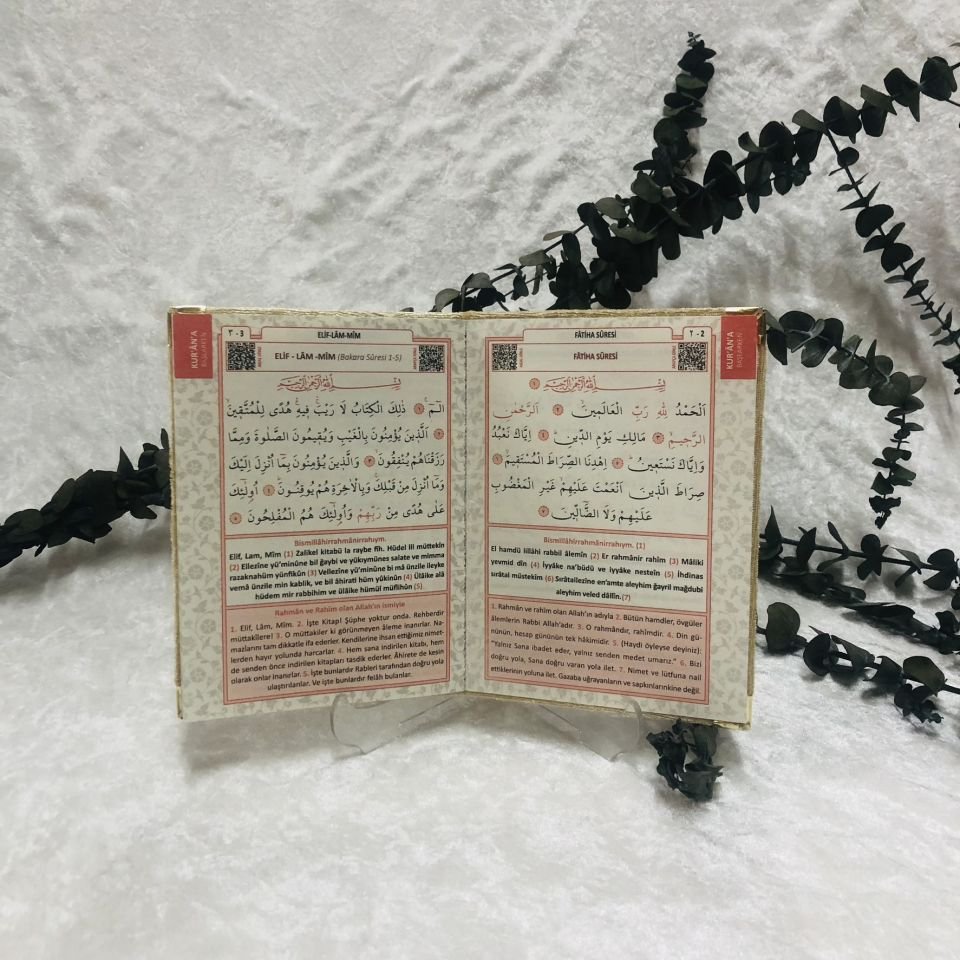 FÂTİHA SÛRESİ
٢ - 2
KUR'ÂN'A
BAŞLARKEN
FÂTİHA SÛRESİ
بِسْمِ اللّٰهِ الرَّحْمٰنِ الرَّحِيمِ ١
اَلْحَمْدُ لِلّٰهِ رَبِّ الْعَالَمِينَۙ ٢ اَلرَّحْمٰنِ
الرَّحِيمِۙ ٣ مَالِكِ يَوْمِ الدِّينِۜ ٤ اِيَّاكَ نَعْبُدُ
وَاِيَّاكَ نَسْتَعِينُۜ ٥ اِهْدِنَا الصِّرَاطَ الْمُسْتَقِيمَۙ ٦
صِرَاطَ الَّذِينَ اَنْعَمْتَ عَلَيْهِمْۙ غَيْرِ الْمَغْضُوبِ
عَلَيْهِمْ وَلَا الضَّٓالِّينَ ٧
Bismillâhirrahmânirrahıym. (1)
El hamdü lillâhi rabbil âlemîn (2) Er rahmânir rahîm (3) Mâliki
yevmid dîn (4) İyyâke na'büdü ve iyyâke nesteîn (5) İhdinas
sırâtal müstekîm (6) Sırâtallezîne en'amte aleyhim ğayril mağdubi
aleyhim veled dâllîn.(7)
1. Rahmân ve rahîm olan Allah'ın adıyla 2. Bütün hamdler, övgüler
âlemlerin Rabbi Allah'adır. 3. O rahmândır, rahîmdir. 4. Din gü-
nünün, hesap gününün tek hâkimidir. 5. (Haydi öyleyse deyiniz):
"Yalnız Sana ibadet eder, yalnız senden medet umarız." 6. Bizi
doğru yola, Sana doğru varan yola ilet. 7. Nimet ve lütfuna nail
ettiklerinin yoluna ilet. Gazaba uğrayanların ve sapkınlarınkine değil.
KUR'ÂN'A
BAŞLARKEN
٣ - 3
ELİF-LÂM-MÎM
ELİF - LÂM -MÎM (Bakara Sûresi 1-5)
بِسْمِ اللّٰهِ الرَّحْمٰنِ الرَّحِيمِ
الٓمٓۚ ١ ذٰلِكَ الْكِتَابُ لَا رَيْبَۚۛ فِيهِۚۛ هُدًى لِلْمُتَّقِينَۙ
٢ اَلَّذِينَ يُؤْمِنُونَ بِالْغَيْبِ وَيُقِيمُونَ الصَّلٰوةَ وَمِمَّا
رَزَقْنَاهُمْ يُنْفِقُونَۙ ٣ وَالَّذِينَ يُؤْمِنُونَ بِمَٓا اُنْزِلَ اِلَيْكَ
وَمَٓا اُنْزِلَ مِنْ قَبْلِكَۚ وَبِالْاٰخِرَةِ هُمْ يُوقِنُونَۜ ٤ اُو۬لٰٓئِكَ
عَلٰى هُدًى مِنْ رَبِّهِمْ وَاُو۬لٰٓئِكَ هُمُ الْمُفْلِحُونَ ٥
Bismillâhirrahmânirrahıym.
Elif, Lam, Mîm (1) Zalikel kitabü la raybe fîh. Hüdel lil müttekîn
(2) Ellezîne yü'minûne bil ğaybi ve yükıymûnes salate ve mimma
razaknahüm yünfikûn (3) Vellezîne yü'minûne bi mâ ünzile ileyke
vemâ ünzile min kablik, ve bil âhirati hüm yûkinûn (4) Ülâike alâ
hüdem mir rabbihim ve ülâike hümül müflihûn (5)
Rahmân ve Rahîm olan Allah'ın ismiyle
1. Elif, Lâm, Mîm. 2. İşte Kitap! Şüphe yoktur onda. Rehberdir
müttakîlere! 3. O müttakiler ki görünmeyen âleme inanırlar. Na-
mazlarını tam dikkatle ifa ederler. Kendilerine ihsan ettiğimiz nimet-
lerden hayır yolunda harcarlar. 4. Hem sana indirilen kitabı, hem
de senden önce indirilen kitapları tasdik ederler. Âhirete de kesin
olarak onlar inanırlar. 5. İşte bunlardır Rableri tarafından doğru yola
ulaştırılanlar. Ve işte bunlardır felâh bulanlar.